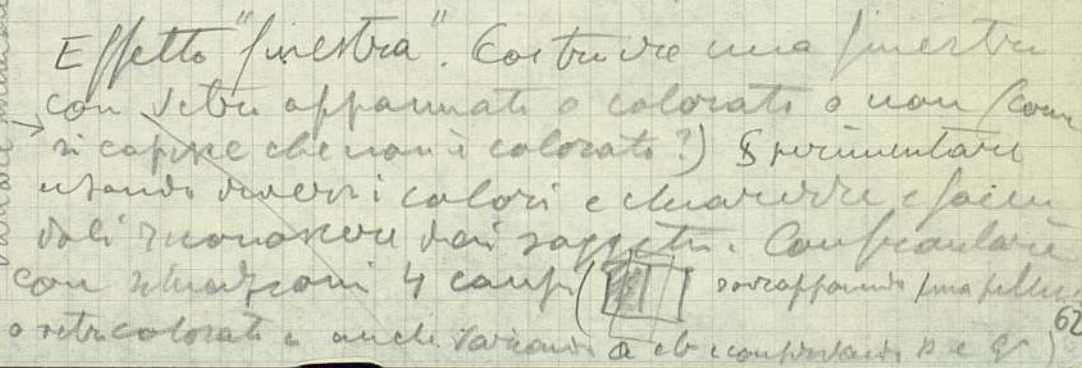 Effetto "finestra". Costruire una finestra
con vetri appannati o colorati o non (come
si capisce che non è colorato?) Sperimentare
usando diversi colori e chiarezze e facen
doli riconoscere dai soggetti. Confrontare
con situazioni 4 campi ( sovrapponendo una pellic
o vetri colorati e anche variando a e b e confrontando p e q )
62